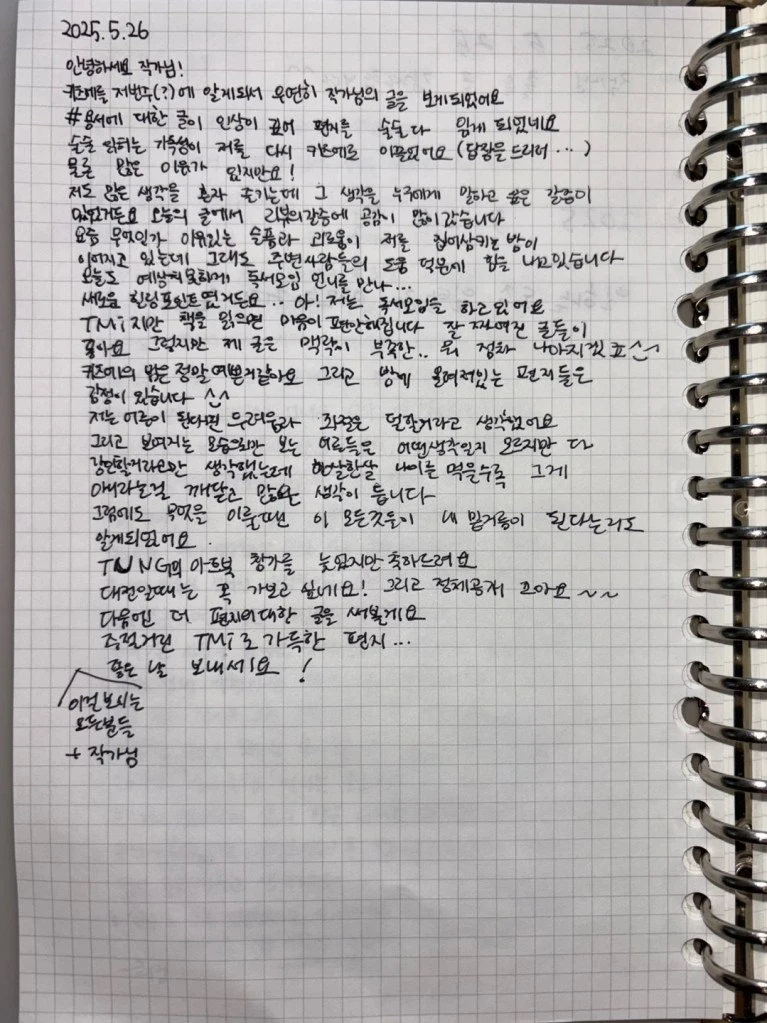 2025.5.26
안녕하세요 작가님!
키즈에를 저번주(?)에 알게되서 우연히 작가님의 글을 보게되었어요
#용서에 대한 글이 인상이 깊어 편지를 술술 다 읽게 되었네요
술술 읽히는 가독성이 저를 다시 이끌었어요 (답장을 드리러 ...)
물론 많은 이유가 있지만요!
저도 많은 생각을 혼자 즐기는데 그 생각을 누구에게 말하고 싶은 갈증이
있었거든요 오늘의 글에서 리뷰의갈증에 공감이 많이 갔습니다
요즘 무엇인가 이유있는 슬픔과 괴로움이 저를 집어삼키는 밤이
이어지고 있는데 그래도 주변사람들의 도움 덕분에 힘을 내고있습니다
오늘도 예상치못하게 독서모임 언니를 만나 ...
새로운 힐링포인트였거든요.. 아! 저는 독서모임을 하고있어요
TMI지만 책을 읽으면 마음이편안해집니다 잘 짜여진 글들이
좋아요 그렇지만 제 글은 맥락이 부족한.. 뭐 점차 나아지겠죠^^
맘은 정말 예쁜거같아요 그리고 방에 올려져있는 편지들은
감정이 있습니다 ^^
저는 어른이 된다면 두려움과 좌절은 덜할거라고 생각했어요
그리고 보여지는 모습으로만 보는 어른들은 어떤생각일지 모르지만 다
강인할거라고만 생각했는데 한살한살 나이를 먹을수록 그게
아니라는걸 깨닫고 많은 생각이 듭니다
그럼에도 무엇을 이룰땐 이 모든것들이 내 밑거름이 된다는것도
알게되었어요.
TUNG의 아트북 참가를 늦었지만 축하드려요
대전일때는 꼭 가보고 싶네요! 그리고 정체공개 좋아요 ~~
다음엔 더 편지에대한 글을 써볼게요
주절거린 TMI로 가득한 편지...
좋은 날 보내세요 !
이걸보시는
모든분들
+ 작가님